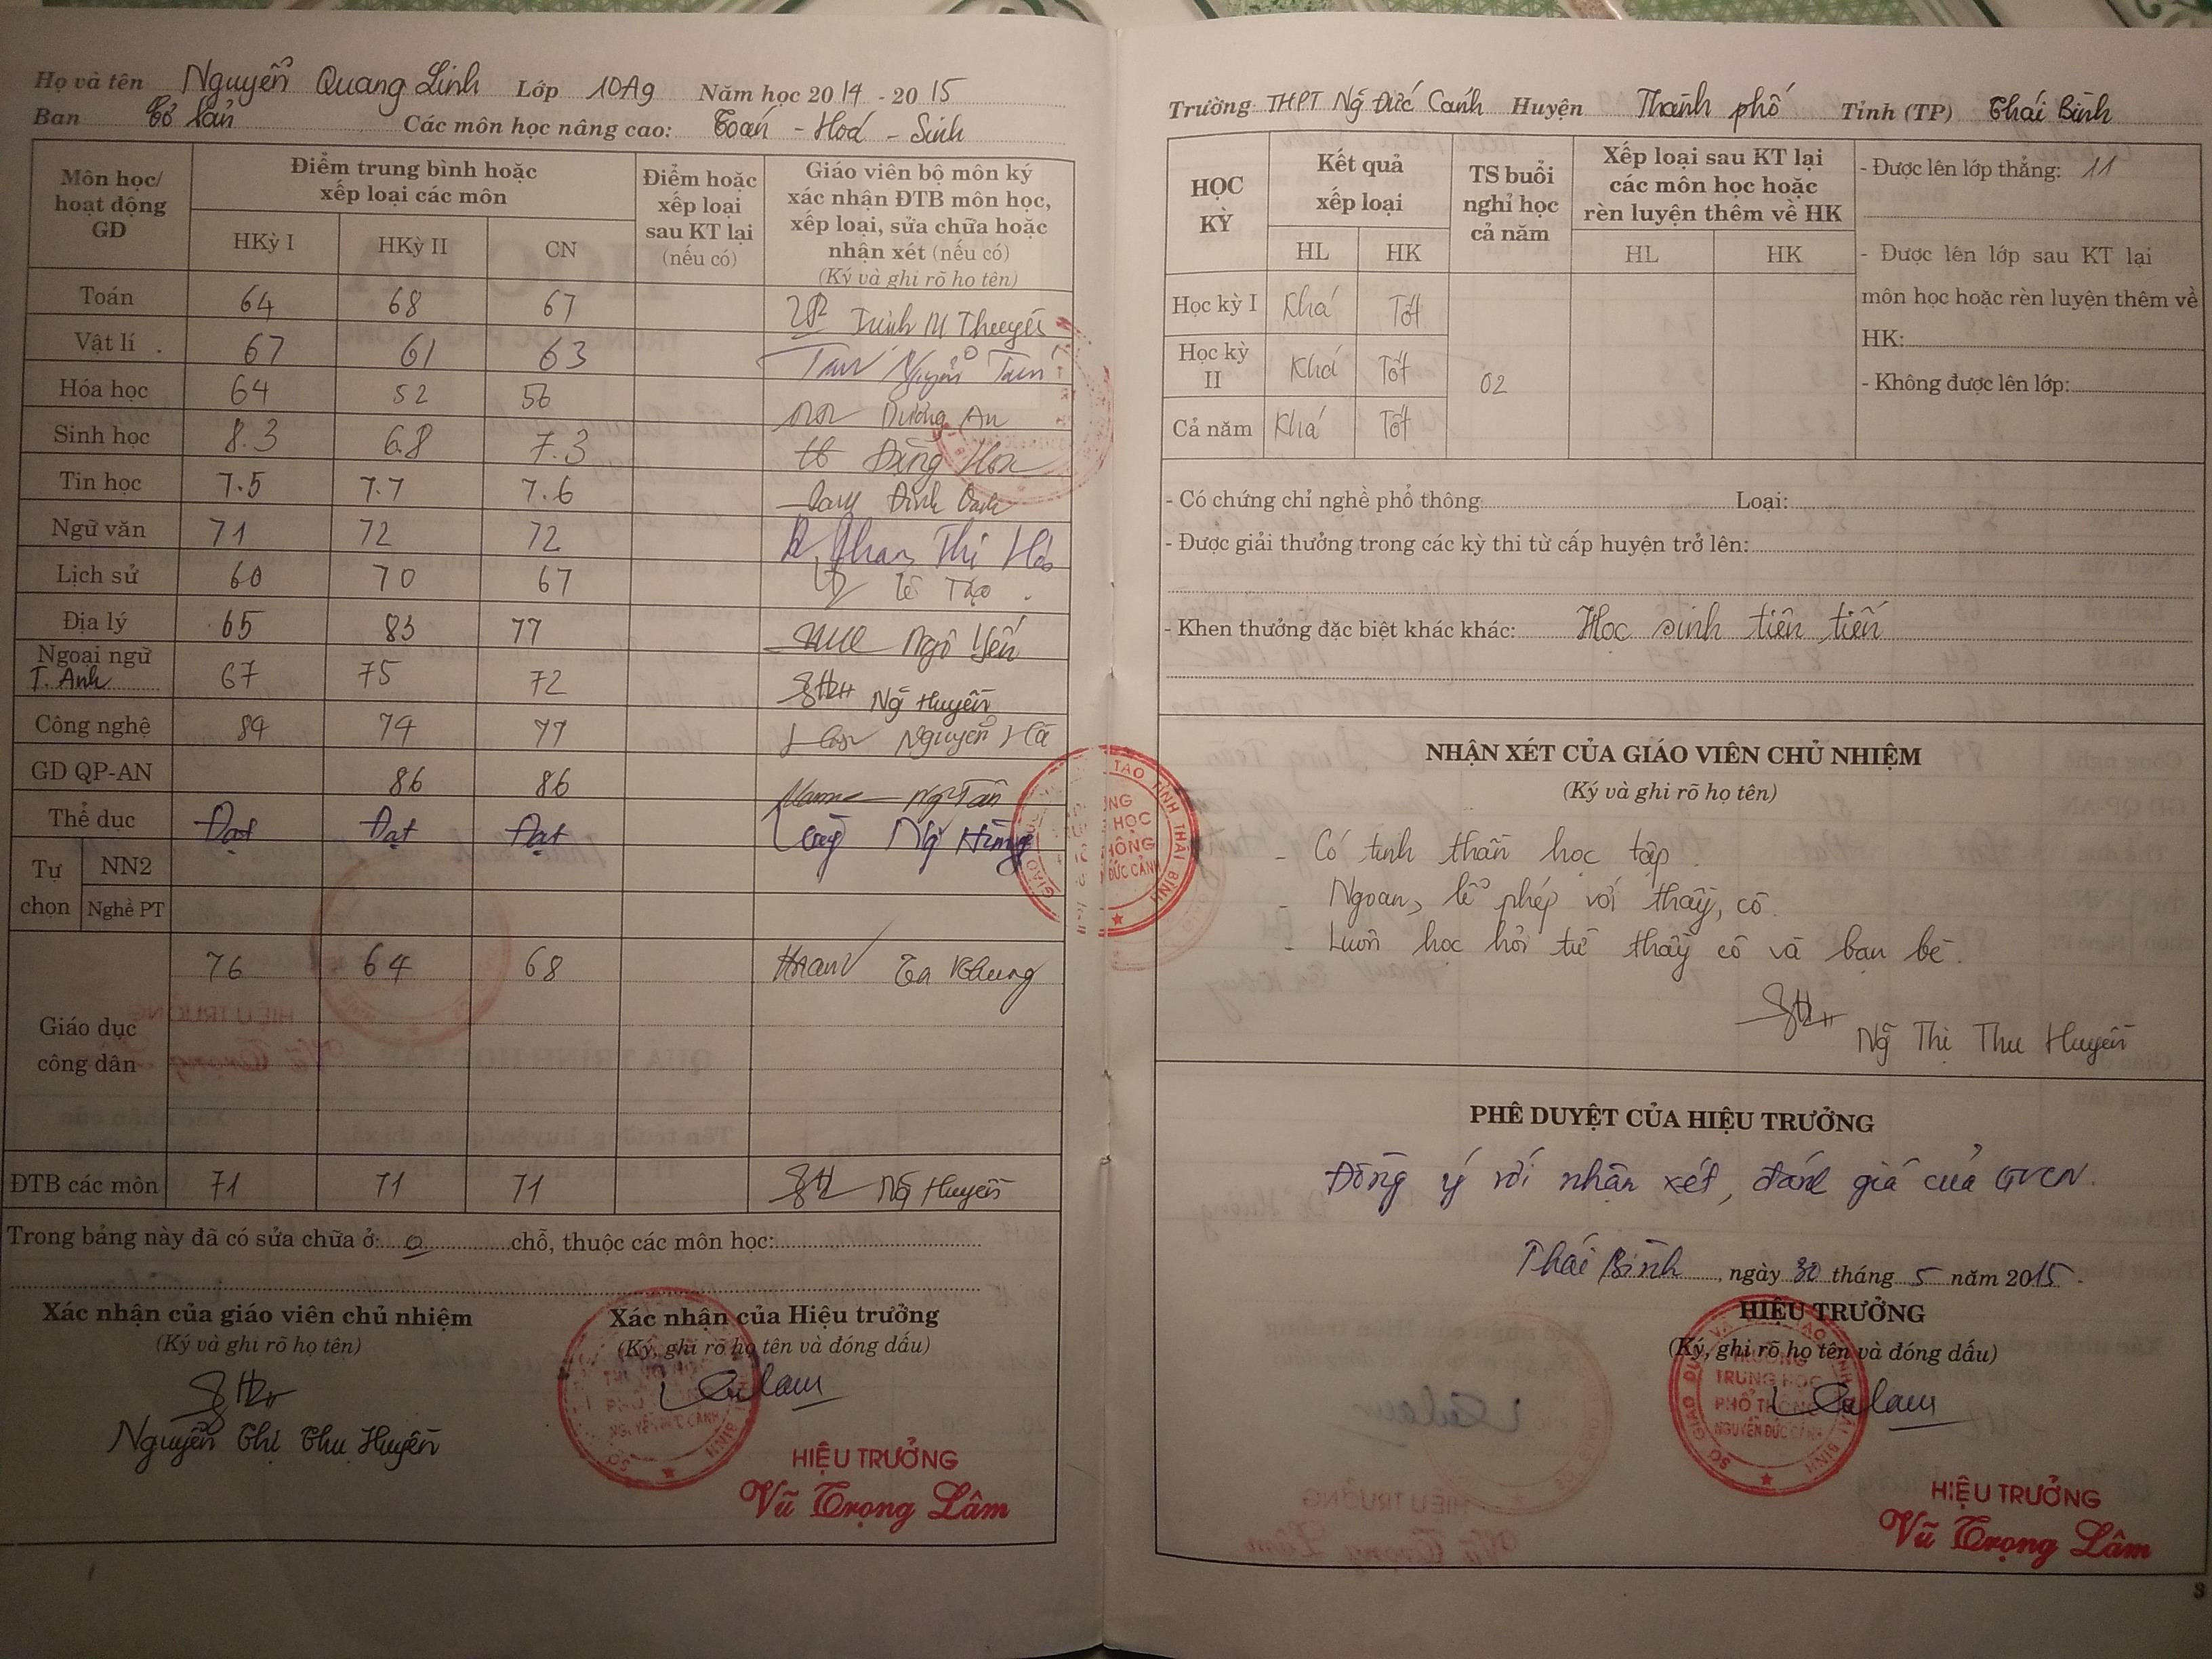 Họ và tên Nguyễn Quang Linh Lớp 10A9 Năm học 2014 - 2015
Ban Cơ bản Các môn học nâng cao: Toán - Hoá - Sinh
Môn học/ hoạt động GD
Điểm trung bình hoặc xếp loại các môn
HKỳ I HKỳ II CN
Điểm hoặc xếp loại sau KT lại (nếu có)
Giáo viên bộ môn ký xác nhận ĐTB môn học, xếp loại, sửa chữa hoặc nhận xét (nếu có)
(Ký và ghi rõ họ tên)
Toán 64 68 67 Trịnh M Thuyết
Vật lí 67 61 63 Nguyễn Tam
Hóa học 64 52 56 Dương An
Sinh học 8.3 6.8 7.3 Đặng Hoa
Tin học 7.5 7.7 7.6 Đinh Oanh
Ngữ văn 71 72 72 Phan Thị
Lịch sử 60 70 67 Lê Thảo
Địa lý 65 83 77 Ngô Yến
Ngoại ngữ
T. Anh 67 75 72 Ng Huyền
Công nghệ 84 74 77 Nguyễn Hà
GD QP-AN 86 86 Ng Tân
Thể dục Đạt Đạt Đạt Ng Hùng
Tự chọn NN2
Nghề PT
Giáo dục công dân 76 64 68 Tạ Khung
ĐTB các môn 71 71 71 Ng Huyền
Trong bảng này đã có sửa chữa ở: 0 chỗ, thuộc các môn học:
Xác nhận của giáo viên chủ nhiệm
(Ký và ghi rõ họ tên)
Nguyễn Thị Thu Huyền
Xác nhận của Hiệu trưởng
(Ký, ghi rõ họ tên và đóng dấu)
HIỆU TRƯỞNG
Vũ Trọng Lâm
Trường THPT Ng Đức Cảnh Huyện Thành phố Tỉnh (TP) Thái Bình
HỌC KỲ
Kết quả xếp loại
HL HK
TS buổi nghỉ học cả năm
Xếp loại sau KT lại các môn học hoặc rèn luyện thêm về HK
HL HK
Học kỳ I Khá Tốt
Học kỳ II Khá Tốt
02
Cả năm Khá Tốt
- Được lên lớp thẳng: 11
- Được lên lớp sau KT lại
môn học hoặc rèn luyện thêm về
HK:
- Không được lên lớp:
- Có chứng chỉ nghề phổ thông Loại:
- Được giải thưởng trong các kỳ thi từ cấp huyện trở lên:
- Khen thưởng đặc biệt khác khác: Học sinh tiên tiến
NHẬN XÉT CỦA GIÁO VIÊN CHỦ NHIỆM
(Ký và ghi rõ họ tên)
- Có tinh thần học tập.
- Ngoan, lễ phép với thầy, cô.
- Luôn học hỏi từ thầy cô và bạn bè.
Ng Thị Thu Huyền
PHÊ DUYỆT CỦA HIỆU TRƯỞNG
Đồng ý với nhận xét, đánh giá của GVCN.
Thái Bình, ngày 30 tháng 5 năm 2015.
HIỆU TRƯỞNG
(Ký, ghi rõ họ tên và đóng dấu)
TRƯỜNG
TRUNG HỌC
PHỔ THÔNG
NGUYỄN ĐỨC CẢNH
HIỆU TRƯỞNG
Vũ Trọng Lâm
3